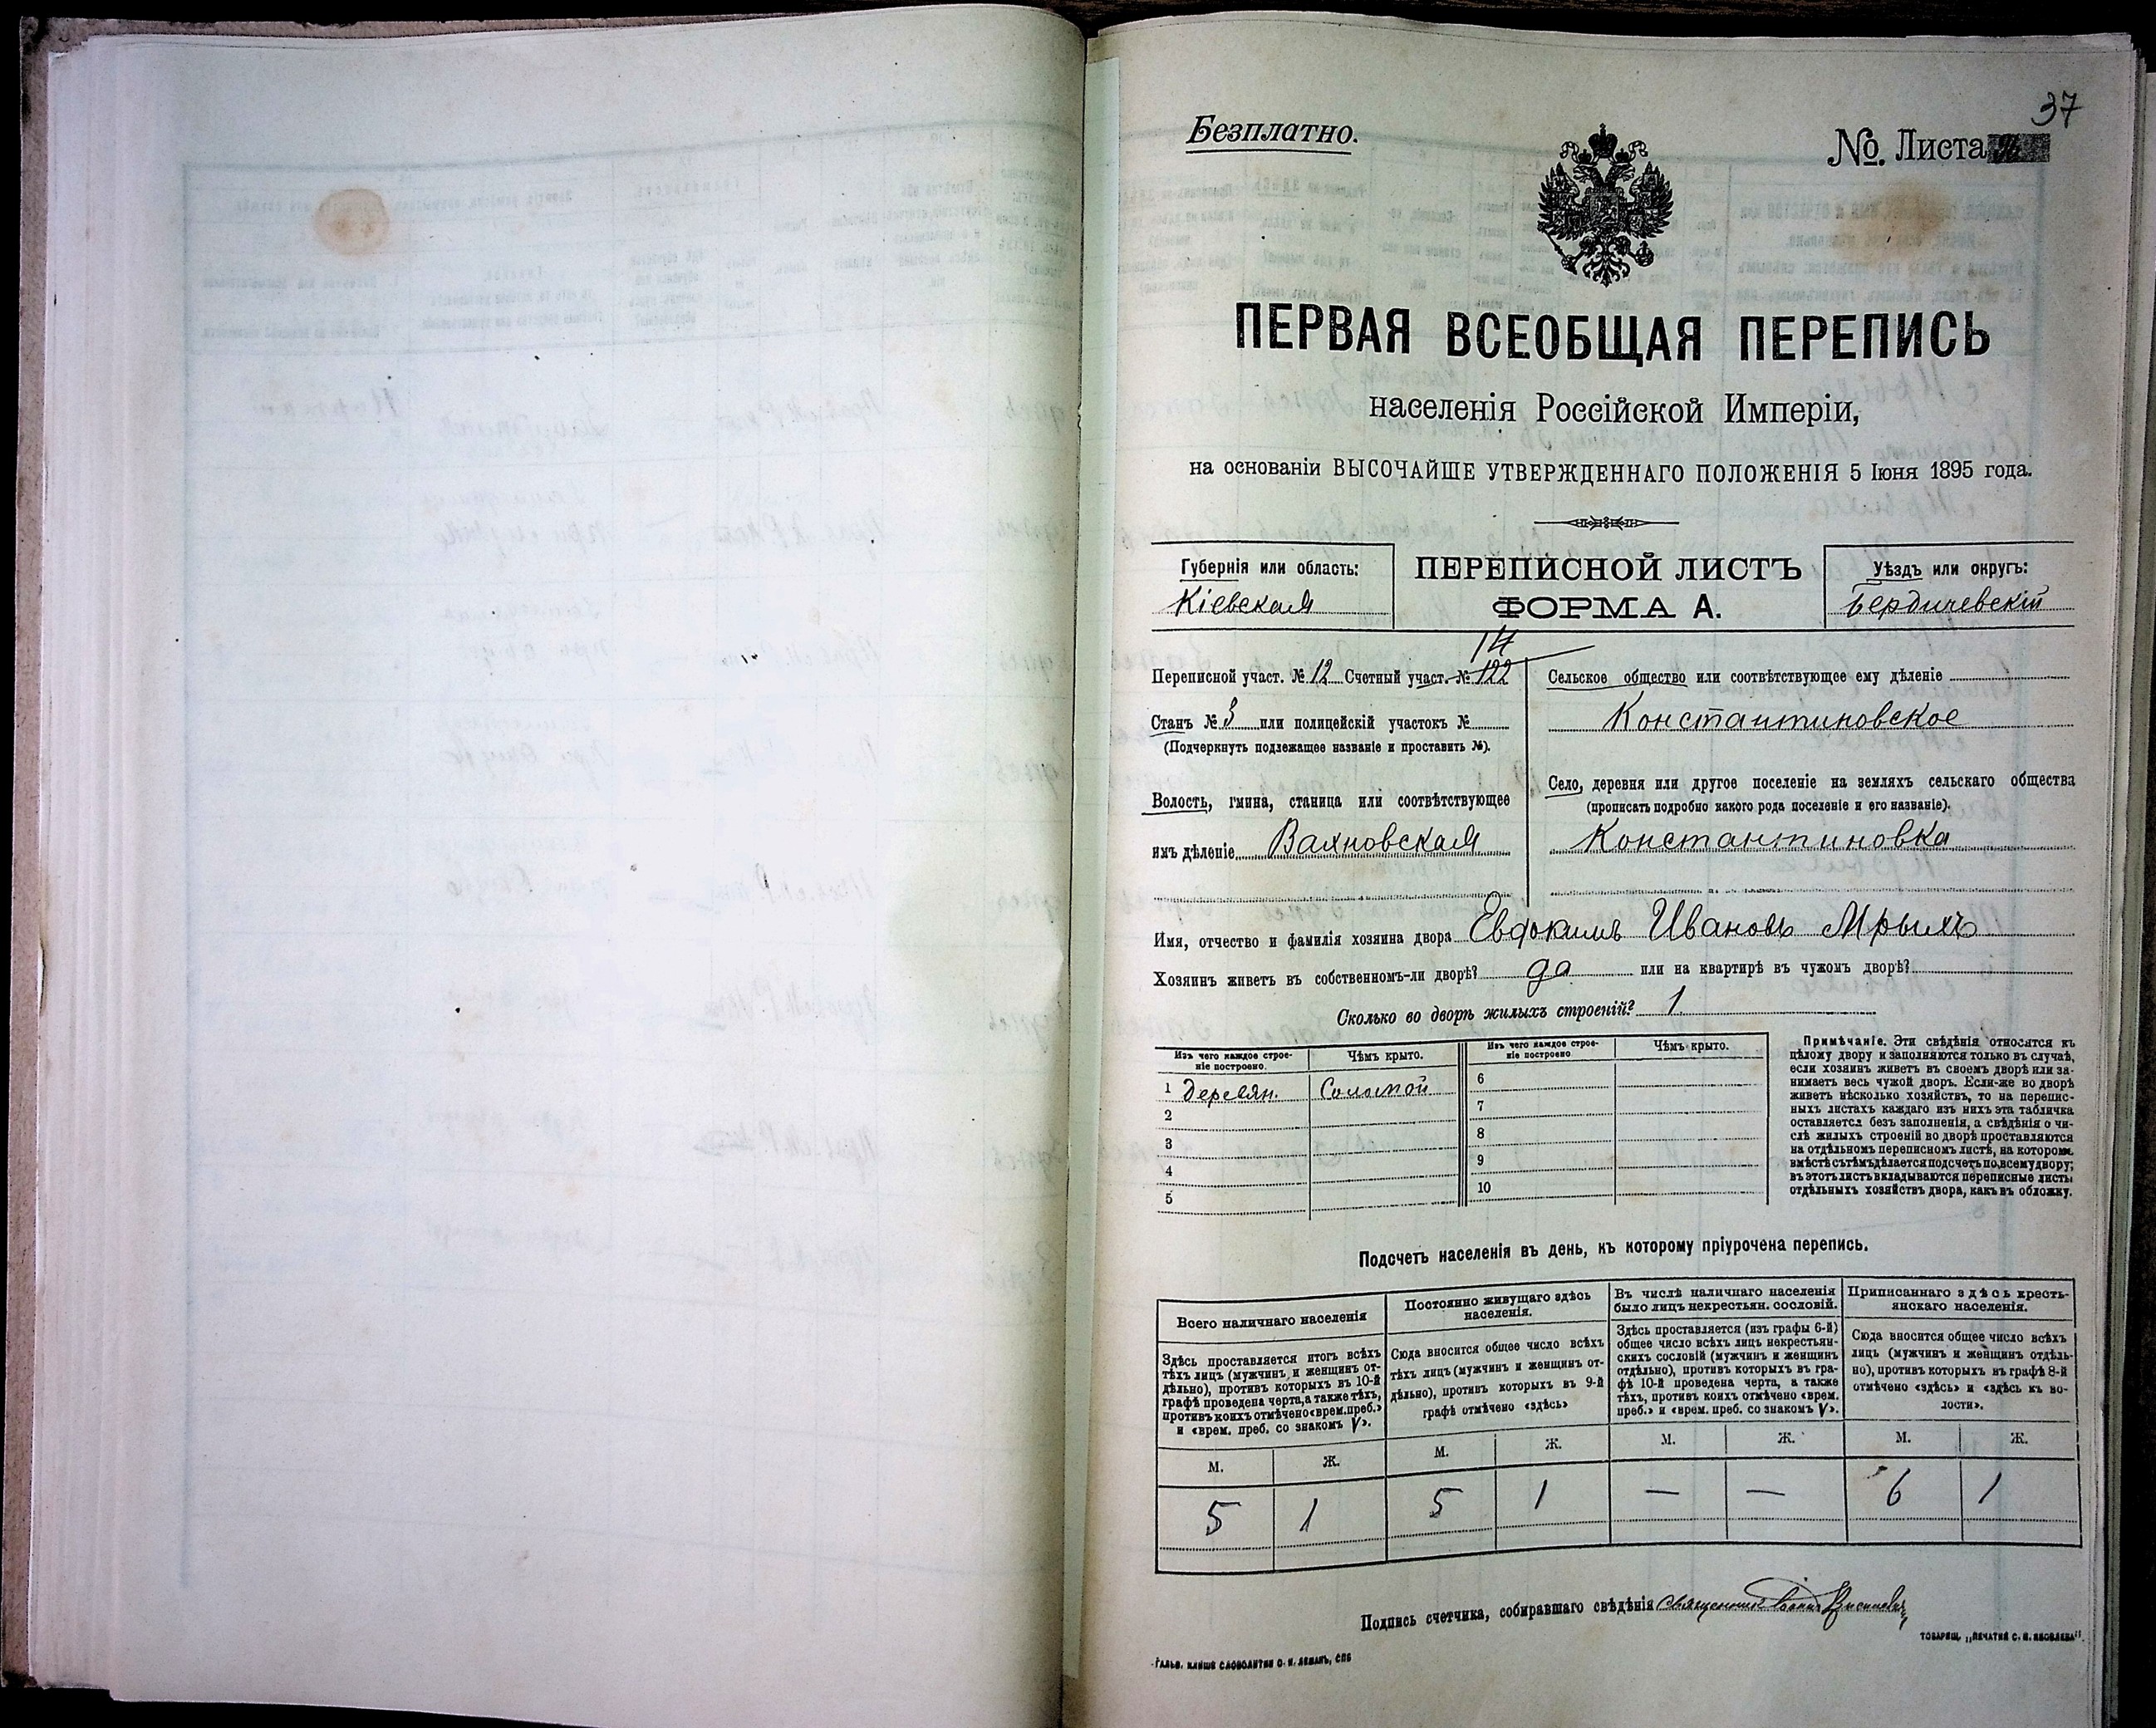 37
Безплатно.
№. Листа
ПЕРВАЯ ВСЕОБЩАЯ ПЕРЕПИСЬ
населенія Россійской Имперіи,
на основаніи ВЫСОЧАЙШЕ УТВЕРЖДЕННАГО ПОЛОЖЕНІЯ 5 Іюня 1895 года.
Губернія или область:
Кіевская
ПЕРЕПИСНОЙ ЛИСТЪ
ФОРМА А.
Уѣздъ или округъ:
Бердичевскій
14
Переписной участ. № 12 Счетный участ. № 122
Станъ № 3 или полицейскій участокъ №
(Подчеркнуть подлежащее названіе и проставить №).
Волость, гмина, станица или соотвѣтствующее
имъ дѣленіе Вахновская
Сельское общество или соотвѣтствующее ему дѣленіе
Константиновское
Село, деревня или другое поселеніе на земляхъ сельскаго общества
(прописать подробно какого рода поселеніе и его названіе).
Константиновка
Имя, отчество и фамилія хозяина двора Евдокимъ Ивановъ Мрыхъ
Хозяинъ живетъ въ собственномъ-ли дворѣ? да или на квартирѣ въ чужомъ дворѣ?
Сколько во дворѣ жилыхъ строеній? 1
Изъ чего каждое строе-
ніе построено.
Чѣмъ крыто.
Изъ чего каждое строе-
ніе построено
Чѣмъ крыто.
1 Деревян. Соломой
2
3
4
5
6
7
8
9
10
Примѣчаніе. Эти свѣдѣнія относятся къ
цѣлому двору и заполняются только въ случаѣ,
если хозяинъ живетъ въ своемъ дворѣ или за-
нимаетъ весь чужой дворъ. Если-же во дворѣ
живетъ нѣсколько хозяйствъ, то на перепис-
ныхъ листахъ каждаго изъ нихъ эта табличка
оставляется безъ заполненія, а свѣдѣнія о чи-
слѣ жилыхъ строеній во дворѣ проставляются
на отдѣльномъ переписномъ листѣ, на которомъ
вмѣстѣ съ тѣмъ дѣлается подсчетъ по всему двору;
въ этотъ листъ вкладываются переписные листы
отдѣльныхъ хозяйствъ двора, какъ въ обложку.
Подсчетъ населенія въ день, къ которому пріурочена перепись.
Всего наличнаго населенія
Здѣсь проставляется итогъ всѣхъ
тѣхъ лицъ (мужчинъ и женщинъ от-
дѣльно), противъ которыхъ въ 10-й
графѣ проведена черта, а также тѣхъ,
противъ коихъ отмѣчено «врем. преб.»
и «врем. преб. со знакомъ V».
Постоянно живущаго здѣсь
населенія.
Сюда вносится общее число всѣхъ
тѣхъ лицъ (мужчинъ и женщинъ от-
дѣльно), противъ которыхъ въ 9-й
графѣ отмѣчено «здѣсь»
Въ числѣ наличнаго населенія
было лицъ некрестьян. сословій.
Здѣсь проставляется (изъ графы 6-й)
общее число всѣхъ лицъ некрестьян-
скихъ сословій (мужчинъ и женщинъ
отдѣльно), противъ которыхъ въ гра-
фѣ 10-й проведена черта, а также
тѣхъ, противъ коихъ отмѣчено «врем.
преб.» и «врем. преб. со знакомъ V».
Приписаннаго здѣсь кресть-
янскаго населенія.
Сюда вносится общее число всѣхъ
лицъ (мужчинъ и женщинъ отдѣль-
но), противъ которыхъ въ графѣ 8-й
отмѣчено «здѣсь» и «здѣсь къ во-
лости».
М. Ж. М. Ж. М. Ж. М. Ж.
5 1 5 1 — — 6 1
Подпись счетчика, собиравшаго свѣдѣнія Священникъ
ТОВАРИЩ. „ПЕЧАТНЯ С. П. ЯКОВЛЕВА".
ГАЛЬВ. КЛИШЕ СЛОВОЛИТНИ О. И. ЛЕМАНЪ, СПБ